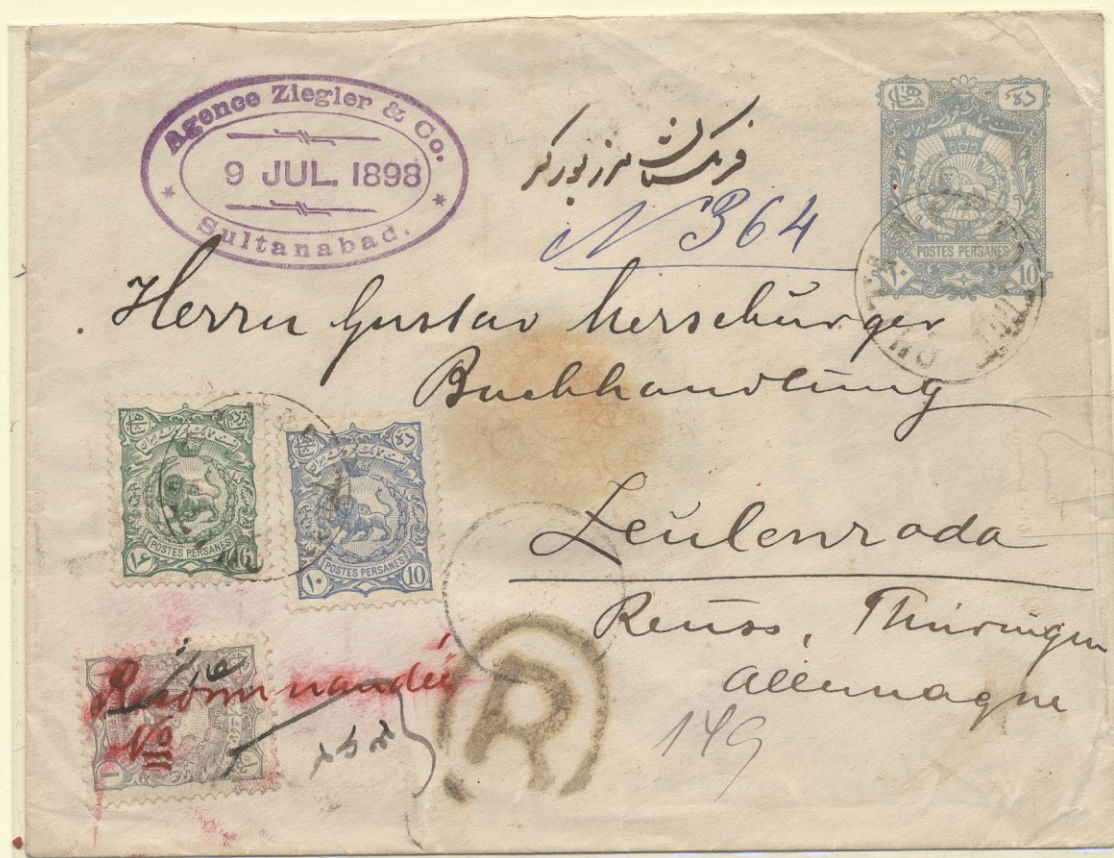 Agence Ziegler & Co.
9 JUL. 1898
Sultanabad.
فرنگستان
N 364
POSTES PERSANES
۱۰ 10
Herrn Gustav Merseburger
Buchhandlung
Zeulenroda
Reuss, Thüringen
Allemagne
POSTES PERSANES
۱۶ 16
POSTES PERSANES
۱۰ 10
Recommandée
No
R
149